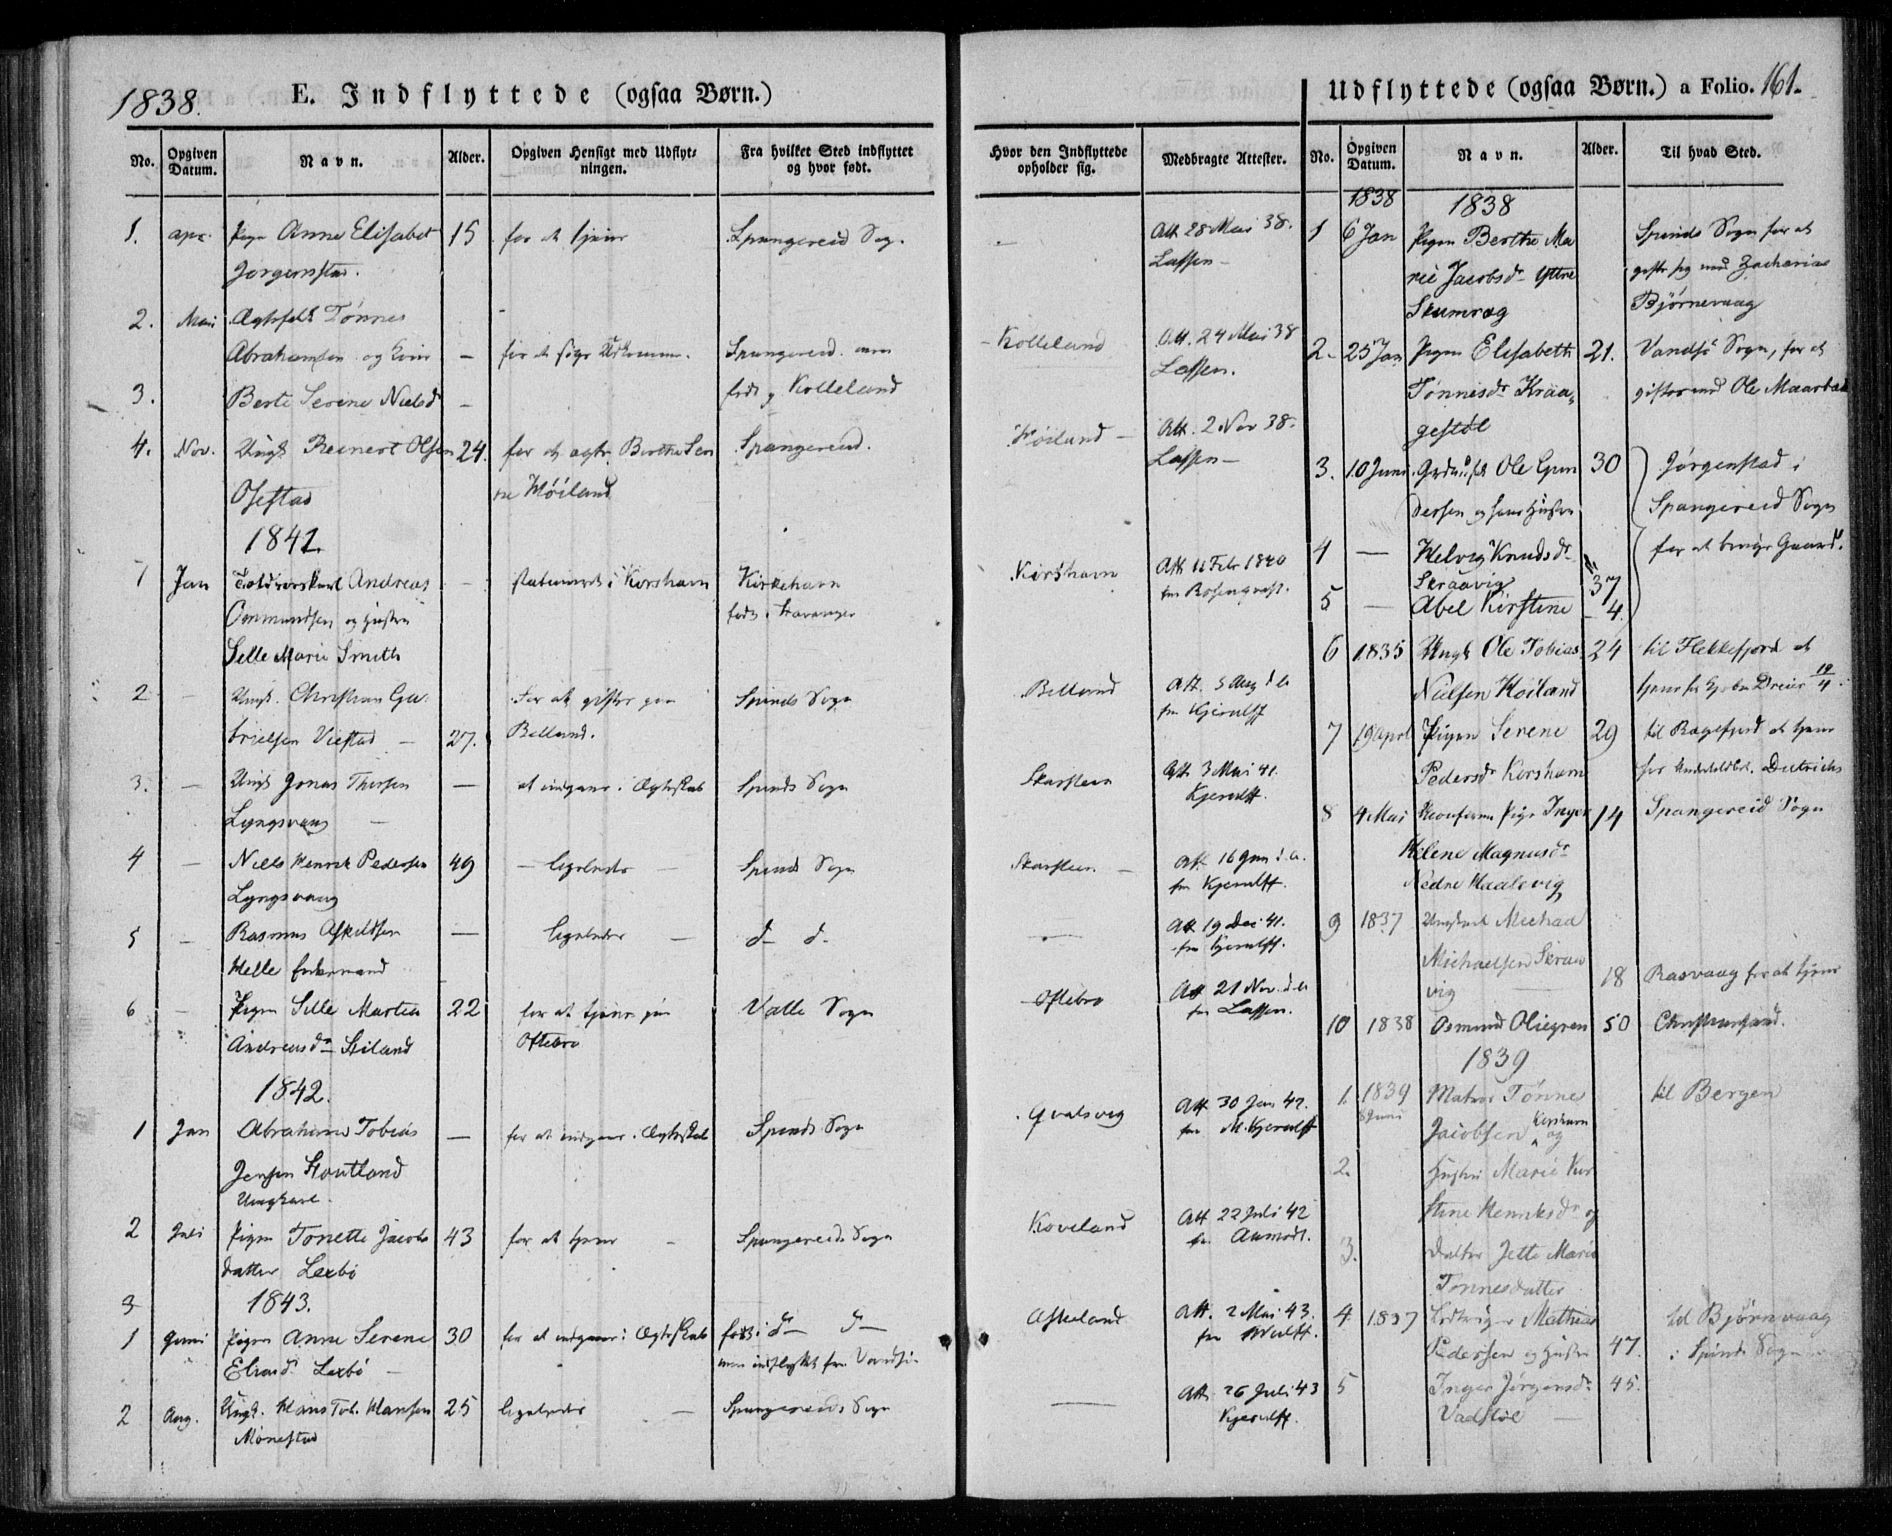 1838.
E. Indflyttede (ogsaa Børn.)
No. Opgiven Datum. Navn. Alder. Opgiven Hensigt med Udflytningen. Fra hvilket Sted indflyttet og hvor født.
1. apr. Pigen Anne Elisabet 15 for at tjene Spangereid Sogn
Jørgenstad.
2. Mai Ægtefolk Tønnes
Abrahamsen og Kone – for at søge Udkomme. Spangereid men
3. Berte Serene Nielsd – født paa Kolleland
4. Nov. Ungk. Reinert Olsen 24. for at ægte Berthe Sere Spangereid.
Osestad ne Høiland
1841.
1 Jan Toldroerskarl Andreas – stationeret i Korshavn Kirkehavn
Ommundsen og Hustru født i Stavanger
Sille Marie Smith
2 – Ungk. Christian Ga For at gifte paa Spinds Sogn
brielsen Viestad – 27. Belland.
3. – Ungk Jonas Thorsen – at indgaae i Ægteskab Spinds Sogn
Lyngsvaag –
4 – Niels Henrik Pedersen 49 – ligeledes – Spinds Sogn
Lyngsvaag
5 – Rasmus Askildsen – ligeledes – d– d–
Helle Enkemand
6 – Pigen Sille Martea 22 for at tjene paa Valle Sogn
Andreasdr Stiland Oftebro
1842.
1 Jan Abraham Tobias – for at indgaae i Ægteskab Spinds Sogn
Jensen Stoutland
Ungkarl.
2 Juli Pigen Tonette Jacobs 43 for at tjene – Spangereids Sogn
datter Lexbö
3 1843.
1 Juni Pigen Anne Serene 30 for at indgaae i Ægteskab født i d– d–
Elisasd Lexbö – men indflyttet fra Vandsø
2 Aug. Ungk. Hans Tob. Hansen 25 ligeledes – Spangereids Sogn
Monestad
Udflyttede (ogsaa Børn.) a Folio. 161.
Hvor den Indflyttede opholder sig. Medbragte Attester. No. Opgiven Datum. Navn. Alder. Til hvad Sted.
Att 28 Mai 38.
Lassen –
– Kolleland Att. 24 Mai 38
Lassen.
Høiland – Att. 2 Nov 38.
Lassen –
Korshavn Att 16 Febr 1840
fra Rosenqvist.
Belland Att. 5 Aug d. A.
fra Kjerulff
Skarsteen Att 3 Mai 41.
Kjerulff.
Skarsteen – Att. 16 Jun d. A.
fra Kjerulff.
– Att 19 Dec 41.
fra Kjerulff.
Oftebro Att 21 Nov. d. A
fra Lassen.
Qvalsvig Att 30 Jan 42.
fra M. Kjerulff
Koveland Att 22 Juli 42
fra Aamodt.
Askeland Att. 2 Mai 43.
fra Wulff.
– Att. 26 Juli 43
Kjerulff.
1838 1838
1 6 Jan Pigen Berthe Ma Spinds Sogn for at
rie Jacobsdr Yttre gifte sig med Zacharias
Skumrag Bjørnevaag
2. 25 Jan Pigen Elisabeth 21. Vandsø Sogn, for at
Tønnesdr Kraa giftes med Ole Maarbak
gestøl
3. 10 Juni Ole Gun 30 Jørgenstad i
dersen og hans Hustru Spangereid Sogn
4 – Helvig Knudsdr for at bruge Gaard.
Skraavig 37
5 – Abel Kirstine – 4.
6 1835 Ungk Ole Tobias 24 til Flekkefjord at
Nielsen Høiland tjene hos Dreier 19/4
7 19 april Pigen Serene 29 til Rægefjord at tjene
Pedersdr Korshavn for Dietrichs
8 4 Mai Pige Inger 14 Spangereid Sogn
Helene Magnusdr
Nedre Haalevig
9 1837 Ungkarl Michael
Michaelsen Skraa
vig – 18 Rasvaag for at tjene
10 1838 Osmund Oliegren 50 Christiansand.
1839
1. 1839 Matros Tønnes til Bergen
8 Juni Jacobsen Korshavn og
2. Hustru Marie Kir
stine Henriksdr og
3. datter Jette Marie
Tønnesdatter
4. 1837 Mathias til Bjørnevaag
Pedersen og Hustru 47. i Spinds Sogn
5 Inger Jørgensdr 45.
Vadstøl –